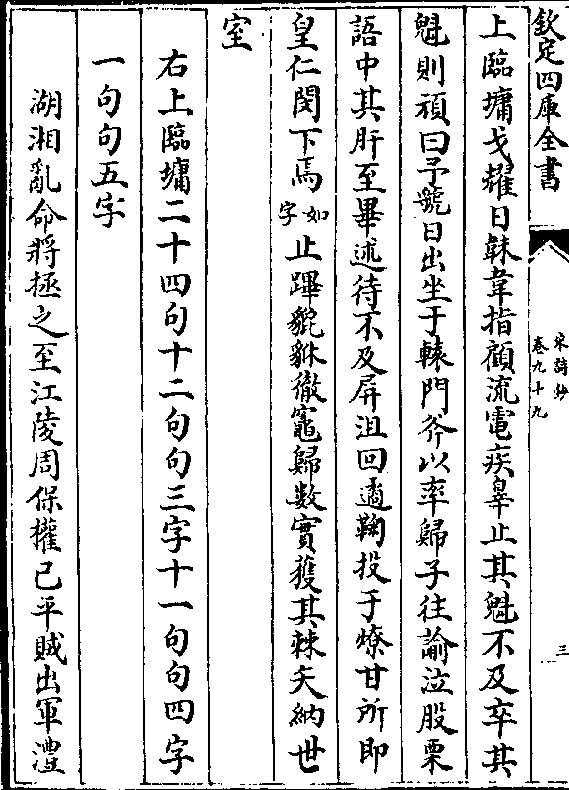 欽定四庫全書
宋詩鈔
卷九十九
三
上臨墉戈耀日韎韋指顧流電疾皋止其魁不及卒其
魁則頑曰予號日出坐于轅門斧以率歸子往諭泣股栗
語中其肝至畢述待不及屏沮回遹鞠投于燎甘所即
皇仁閔下焉如字止蹕貔貅徹竈歸數實獲其棘矢納世
室
右上臨墉二十四句十二句句三字十一句句四字
一句句五字
湖湘亂命將拯之至江陵周保權已平賊出軍澧